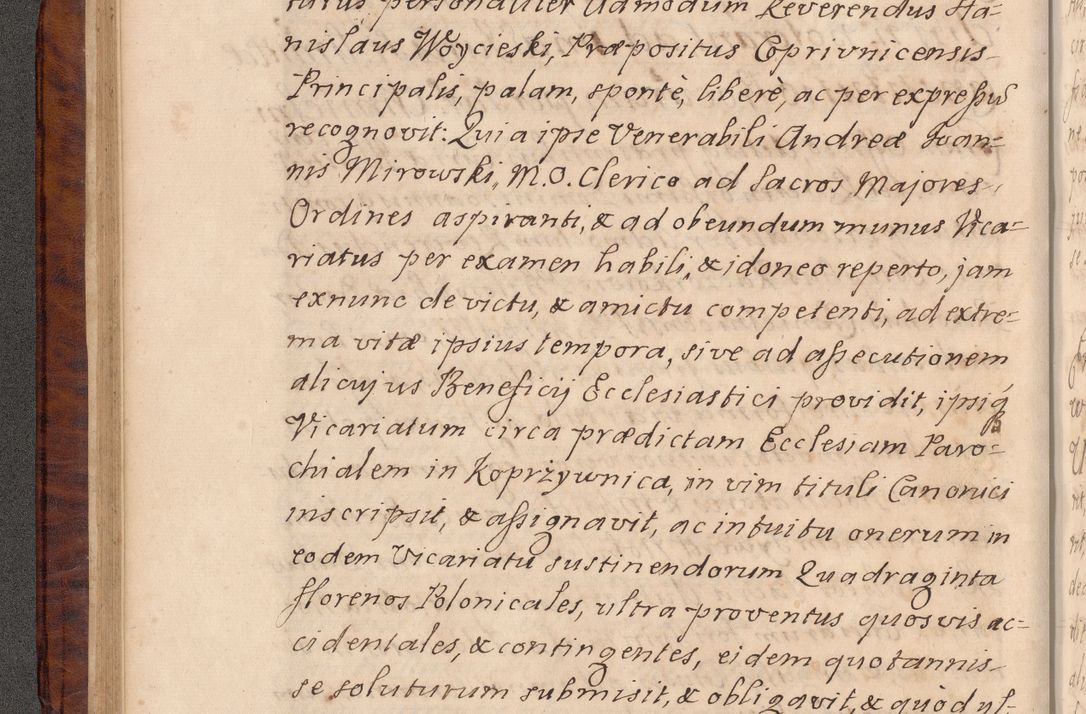 turus personaliter Admodum Reverendus Sta=
nislaus Woycieski, Præpositus Coprivnicensis
Principalis, palam, spontè, liberè, ac per expreßũ
recognovit: Quia ipse Venerabili Andreæ Ioan=
nis Mirowski, M.O. Clerico ad Sacros Majores
Ordines aspiranti, & ad obeundum munus Vica=
riatus per examen habili, & idoneo reperto, jam
exnunc de victu, & amictu competenti, ad extre=
ma vitæ ipsius tempora, sive ad aßecutionem
alicujus Beneficij Ecclesiastici providit, ipsiq́
Vicariatum circa prædictam Ecclesiam Paro=
chialem in Koprżywnica, in vim tituli Canonici
inscripsit, & aßignavit, ac intuitu onerum in
eodem Vicariatu sustinendorum Quadraginta
florenos Polonicales, ultra proventus quosvis ac=
cidentales, & contingentes, eidem quotannis
se soluturum submisit, & obligavit, & quòd ul=